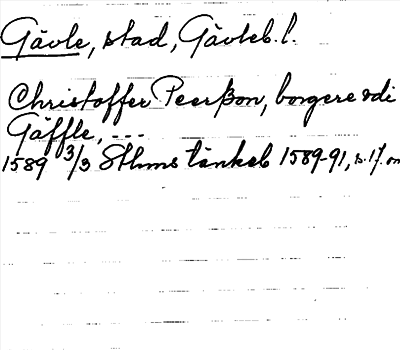 Gävle, stad, Gävleb. l.
Christoffer Peerßon, borgere vdi
Gäffle, ---
1589 3/3 Sthms tänkeb 1589-91, s. 17. om